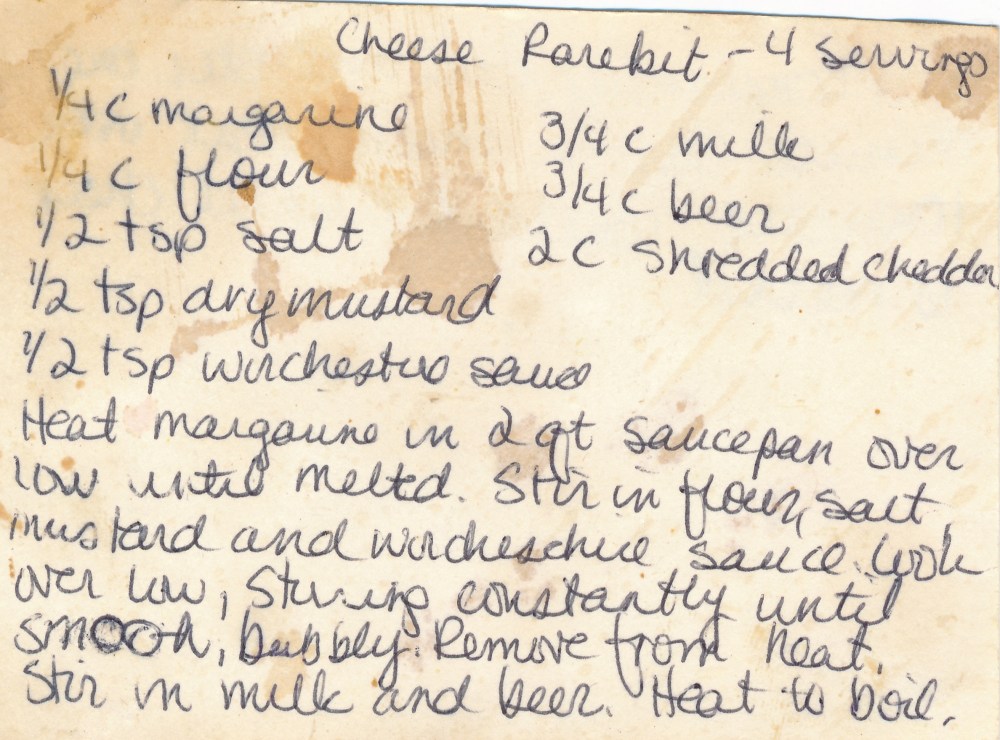 Cheese Rarebit - 4 Servings
1/4 c margarine
1/4 c flour
1/2 tsp salt
1/2 tsp dry mustard
1/2 tsp worchestire sauce
3/4 c milk
3/4 c beer
2 c shredded cheddar
Heat margarine in 2 qt saucepan over
low until melted. Stir in flour, salt,
mustard and worcheschire sauce. Cook
over low, stirring constantly until
smooth, bubbly. Remove from heat.
Stir in milk and beer. Heat to boil.